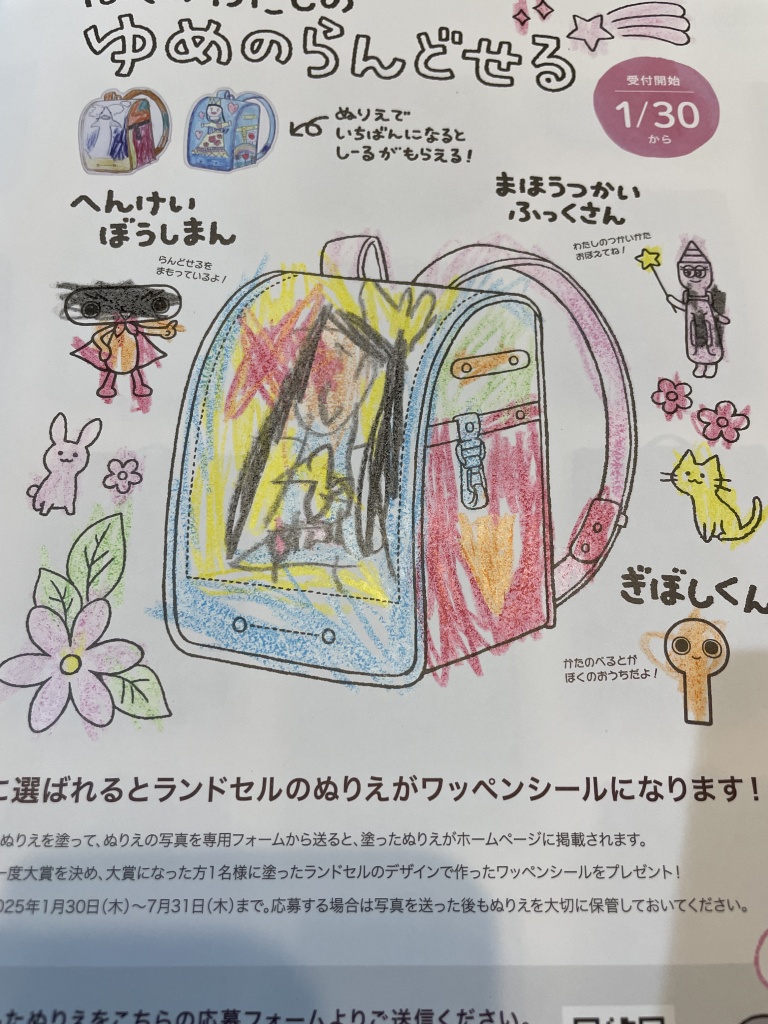 ゆめのらんどせる
受付開始
1/30
から
ぬりえで
いちばんになると
しーるがもらえる!
へんけい
ぼうしまん
らんどせるを
まもっているよ!
まほうつかい
ふっくさん
わたしのつかいかた
おぼえてね!
ぎぼしくん
かたのべるとが
ぼくのおうちだよ!
に選ばれるとランドセルのぬりえがワッペンシールになります!
ぬりえを塗って、ぬりえの写真を専用フォームから送ると、塗ったぬりえがホームページに掲載されます。
一度大賞を決め、大賞になった方1名様に塗ったランドセルのデザインで作ったワッペンシールをプレゼント!
025年1月30日(木)〜7月31日(木)まで。応募する場合は写真を送った後もぬりえを大切に保管しておいてください。
ったぬりえをこちらの応募フォームよりご送信ください。